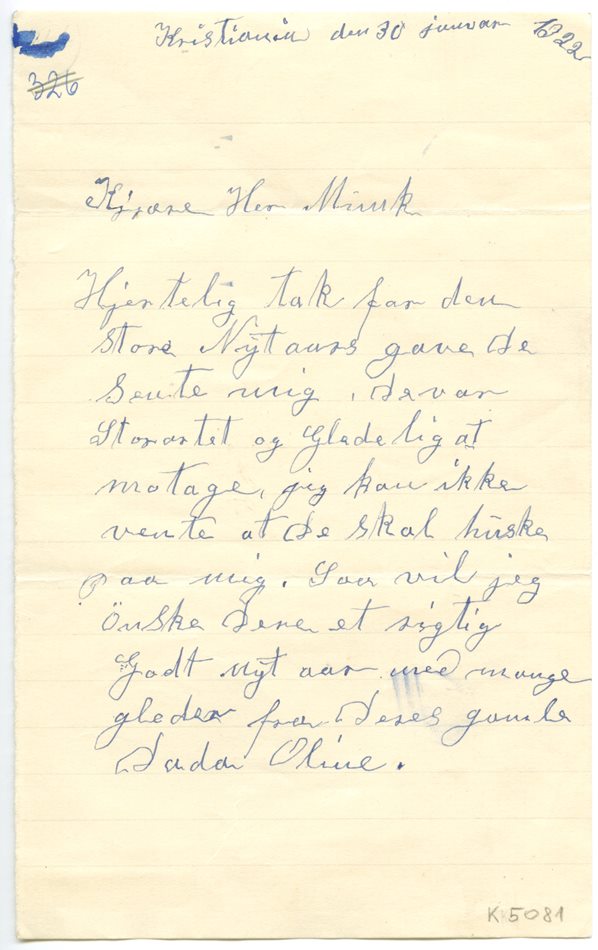 Kristiania den 30 januar 1922
326
Kjære Her Munk
Hjertelig tak for den
Store Nÿtaars gave De
Sente mig, de var
Storartet og Gladelig at
motage, jeg kan ikke
vente at De skal huske
paa mig. Saa vil jeg
önske Dere et rigtig
Godt nÿt aar med mange
gleder fra Deres gamle
Dada Oline.
K 5081